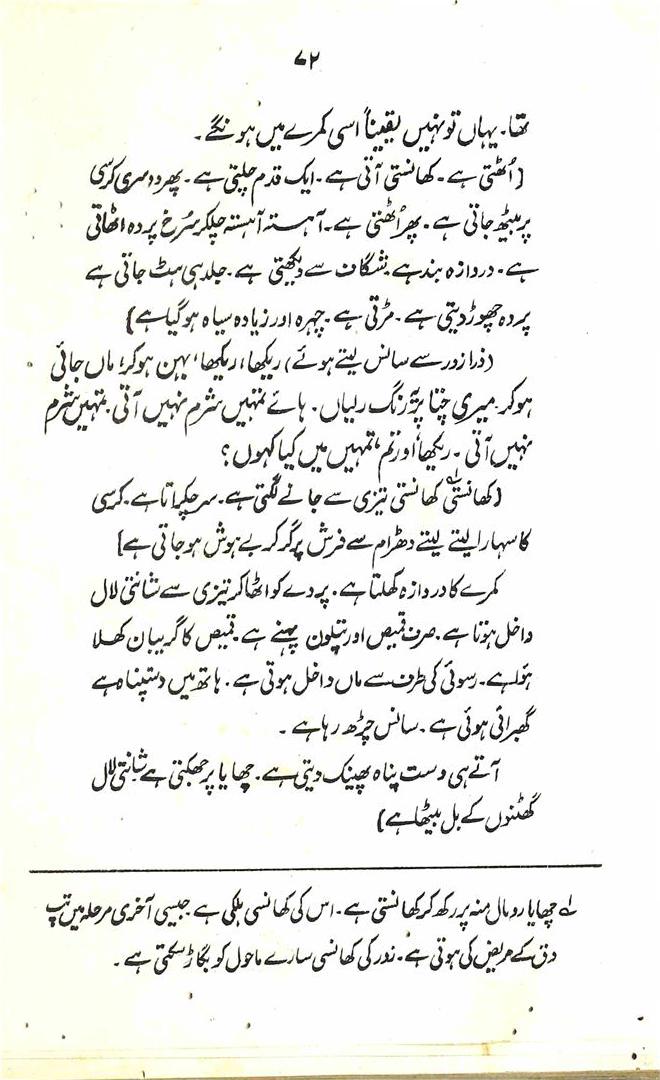 ۷۲
تھا۔ یہاں تو نہیں یقیناً اسی کمرے میں ہونگے۔
(اُٹھتی ہے۔ کھانستی آتی ہے۔ ایک قدم چلتی ہے۔ پھر دوسری کرسی
پر بیٹھ جاتی ہے۔ پھر اُٹھتی ہے۔ آہستہ آہستہ چلکر سُرخ پردہ اٹھاتی
ہے۔ دروازہ بند ہے شگاف سے دیکھتی ہے۔ جلد ہی ہٹ جاتی ہے
پردہ چھوڑ دیتی ہے۔ مڑتی ہے۔ چہرہ اور زیادہ سیاہ ہوگیا ہے)
(ذرا زور سے سانس لیتے ہوئے) ریکھا، ریکھا، بہن ہوکر! ماں جائی
ہوکر۔ میری چِتا پہ رنگ رلیاں۔ ہائے تمہیں شرم نہیں آتی۔ تمہیں شرم
نہیں آتی۔ ریکھا اور تم، تمہیں میں کیا کہوں؟
(کھانستی لے کھانستی تیزی سے جانے لگتی ہے۔ سر چکراتا ہے۔ کرسی
کا سہارا لیتے لیتے دھڑام سے فرش پر گر کر بے ہوش ہوجاتی ہے)
کمرے کا دروازہ کھلتا ہے۔ پردے کو اٹھا کر تیزی سے شانتی لال
داخل ہوتا ہے۔ صرف قمیص اور پتلون پہنے ہے۔ قمیص کا گریبان کھلا
ہؤا ہے۔ رسوئی کی طرف سے ماں داخل ہوتی ہے۔ ہاتھ میں دستپناہ ہے
گھبرائی ہوئی ہے۔ سانس چڑھ رہا ہے۔
آتے ہی دست پناہ پھینک دیتی ہے۔ چھایا پر جھکتی ہے شانتی لال
گھٹنوں کے بل بیٹھا ہے)
لے چھایا رومال منہ پر رکھ کر کھانستی ہے۔ اس کی کھانسی ہلکی ہے جیسی آخری مرحلہ میں تپ
دق کے مریض کی ہوتی ہے۔ زور کی کھانسی سارے ماحول کو بگاڑ سکتی ہے۔